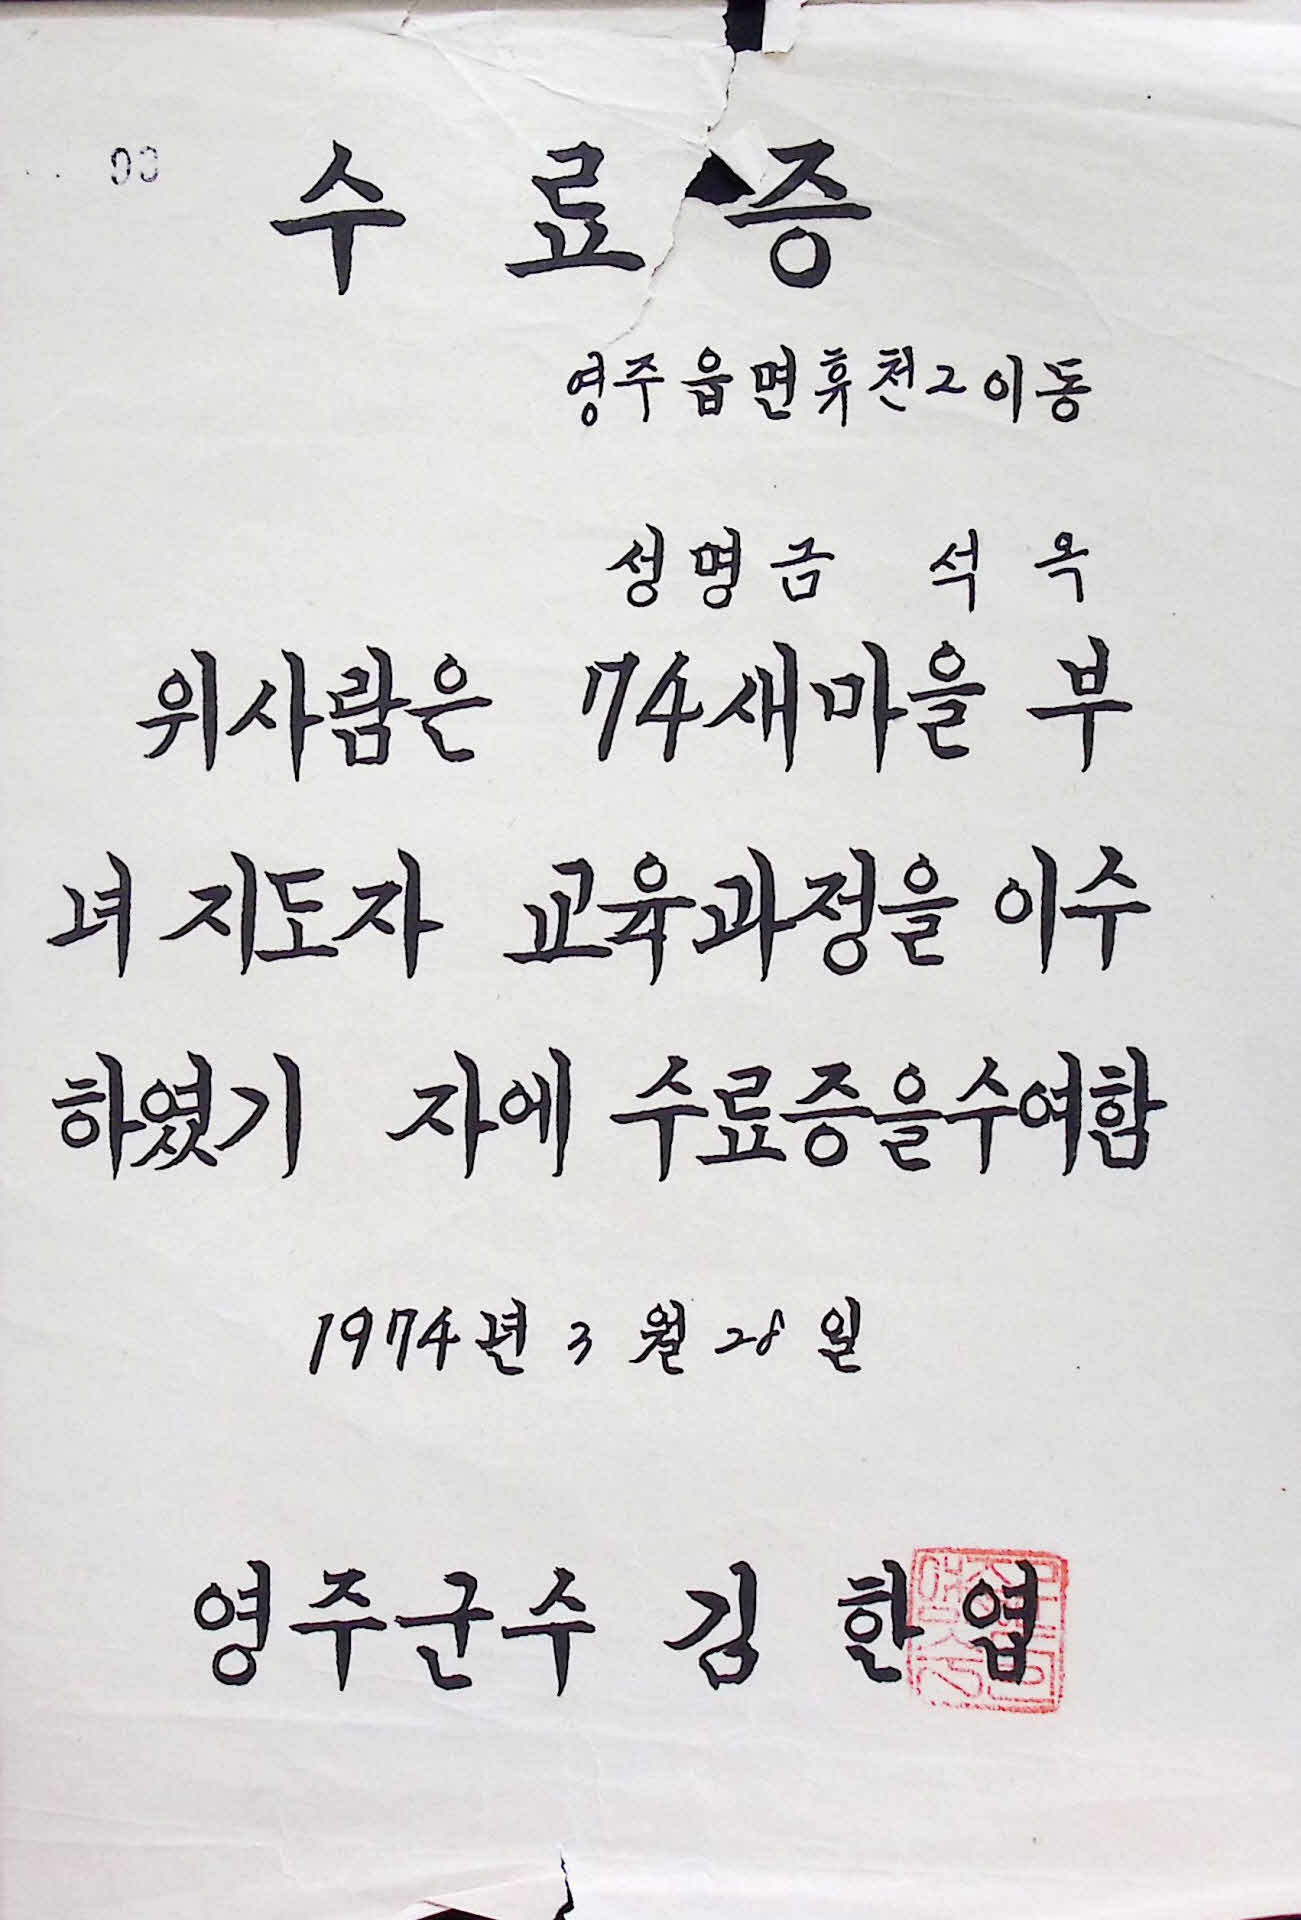 수 료 증
영주 읍면 휴천2이동
성명 금 석 옥
위사람은 74새마을 부
녀 지도자 교육과정을 이수
하였기 자에 수료증을수여함
1974년 3월 28일
영주군수 김 한 엽